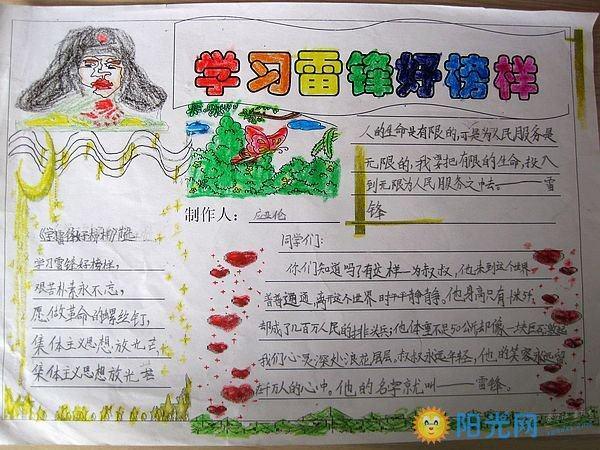 学习雷锋好榜样
人的生命是有限的,可是为人民服务是
无限的,我要把有限的生命,投入
到无限为人民服务之中去。——雷
锋
制作人:
学习雷锋好榜样,
艰苦朴素永不忘,
愿做革命的螺丝钉,
集体主义思想放光芒,
集体主义思想放光芒
同学们:
你们知道吗?有这样一为叔叔,他来到这个世界
普普通通,离开这个世界时平平静静。他身高只有
却成了几百万人民的排头兵;他体重不足50公斤却像一块巨石激起
我们心灵深处浪花层层。叔叔永远年轻,他的笑容永远留
在千万人的心中。他的名字就叫——雷锋。
阳光网